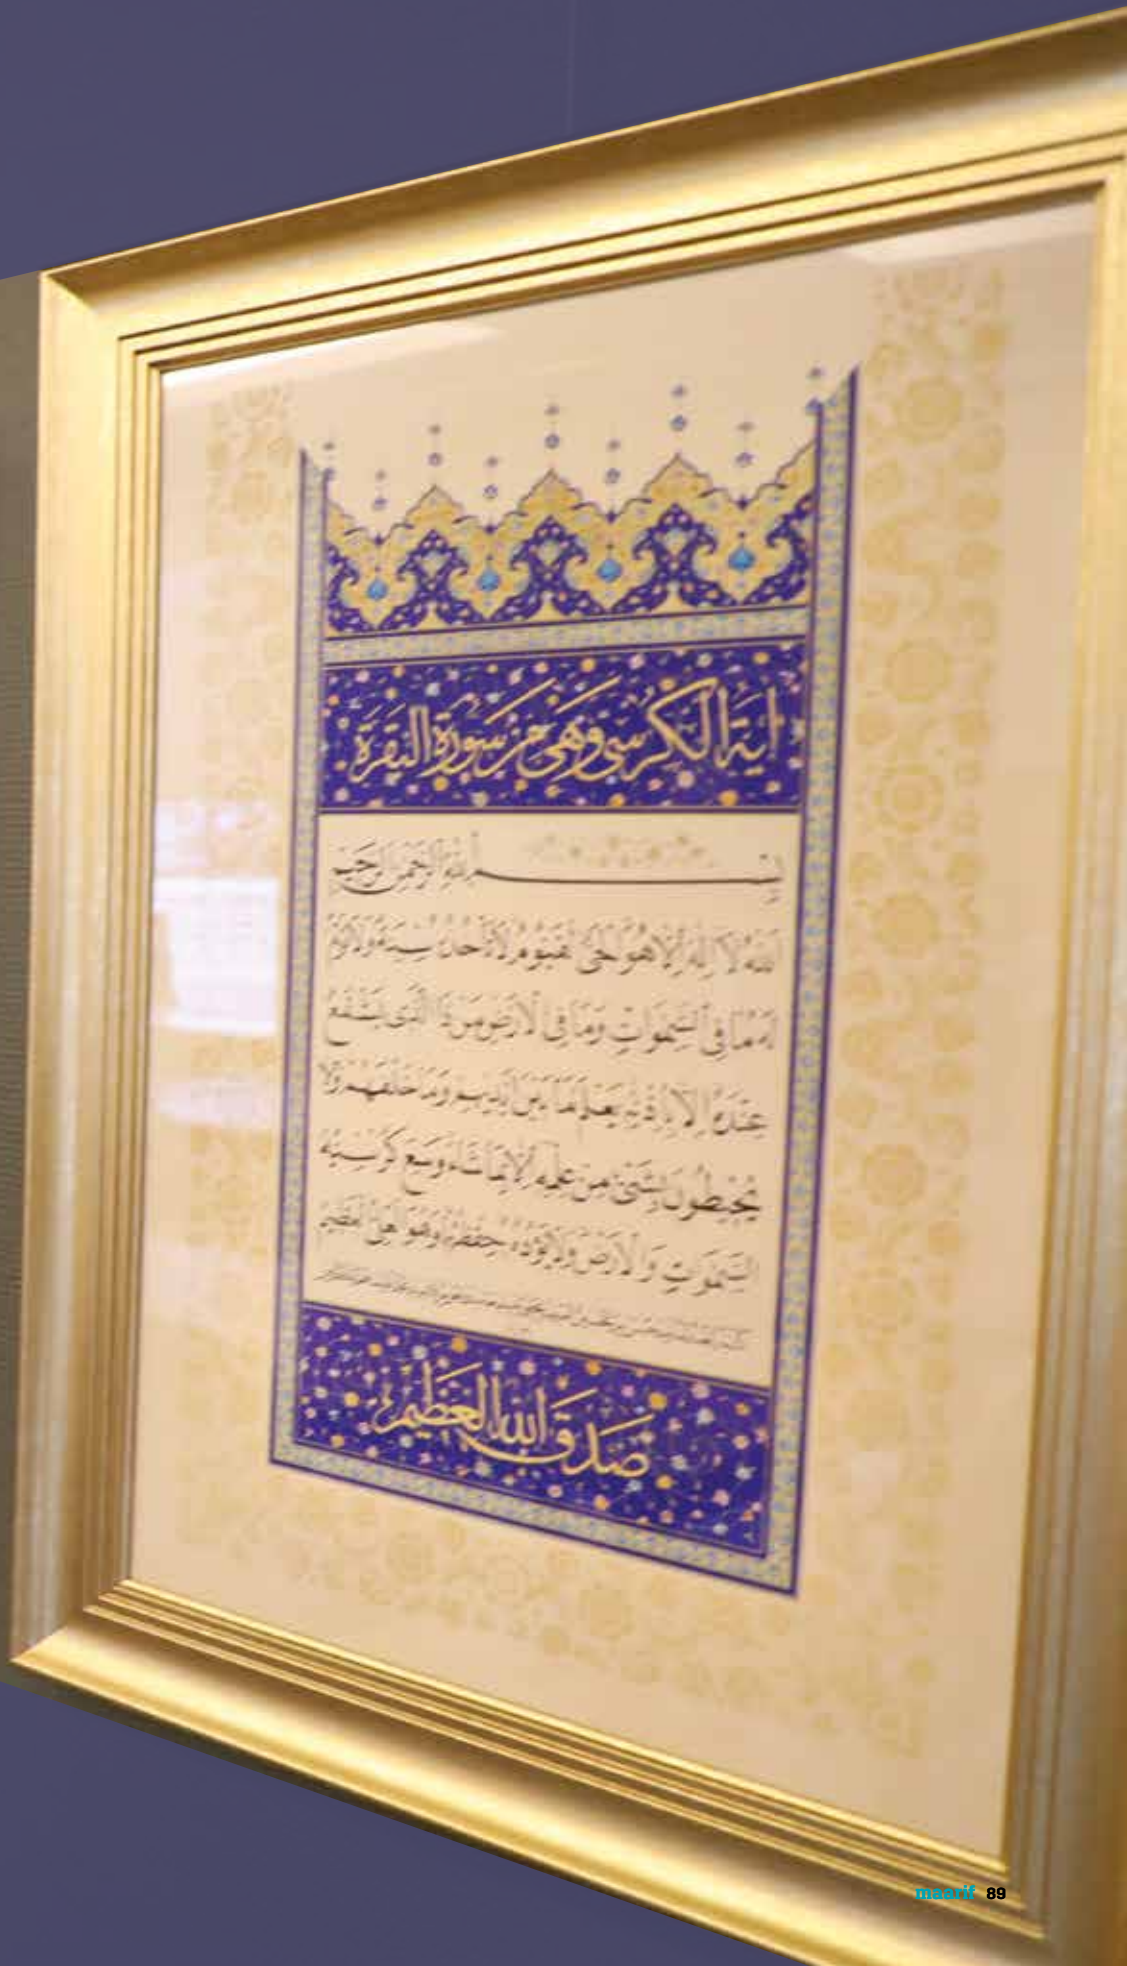 اية الكرسي وهي من سورة البقرة
بسم الله الرحمن الرحيم
الله لا اله الا هو الحي القيوم لا تأخذه سنة ولا نوم
له ما في السموات وما في الارض من ذا الذي يشفع
عنده الا باذنه يعلم ما بين ايديهم وما خلفهم ولا
يحيطون بشيء من علمه الا بما شاء وسع كرسيه
السموات والارض ولا يؤده حفظهما وهو العلي العظيم
صدق الله العظيم
maarif 89